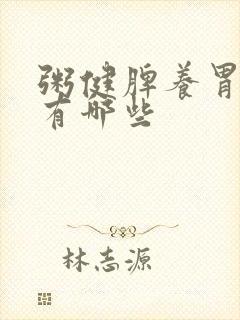 粥健脾养胃
有哪些
林志源